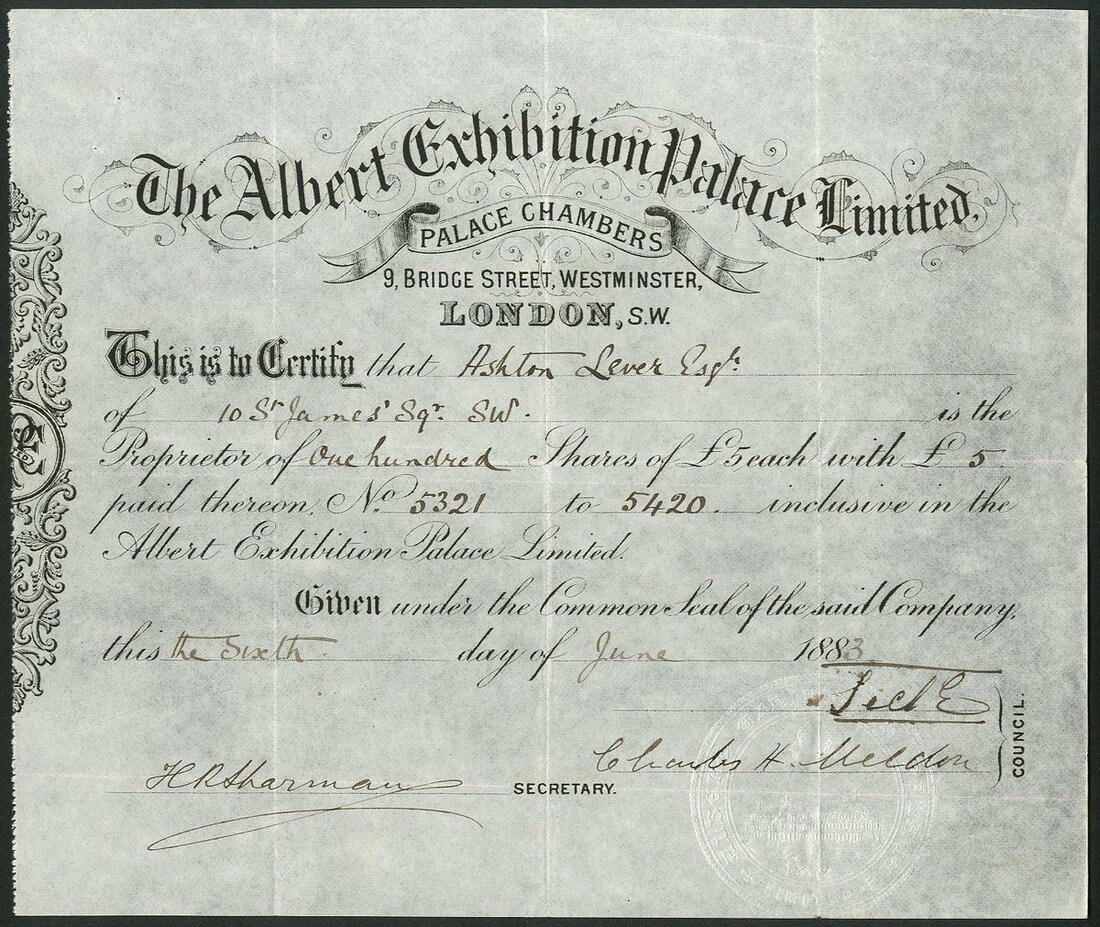 The Albert Exhibition Palace Limited,
PALACE CHAMBERS
9, BRIDGE STREET, WESTMINSTER,
LONDON, S.W.
This is to Certify that Ashton Lever Esqr.
of 10 St James' Sqr. SW. is the
Proprietor of One hundred Shares of £5 each with £ 5
paid thereon, No. 5321 to 5420. inclusive in the
Albert Exhibition Palace Limited.
Given under the Common Seal of the said Company,
this the Sixth day of June 1883
Charles H. Meldon
COUNCIL.
H R Sharman
SECRETARY.